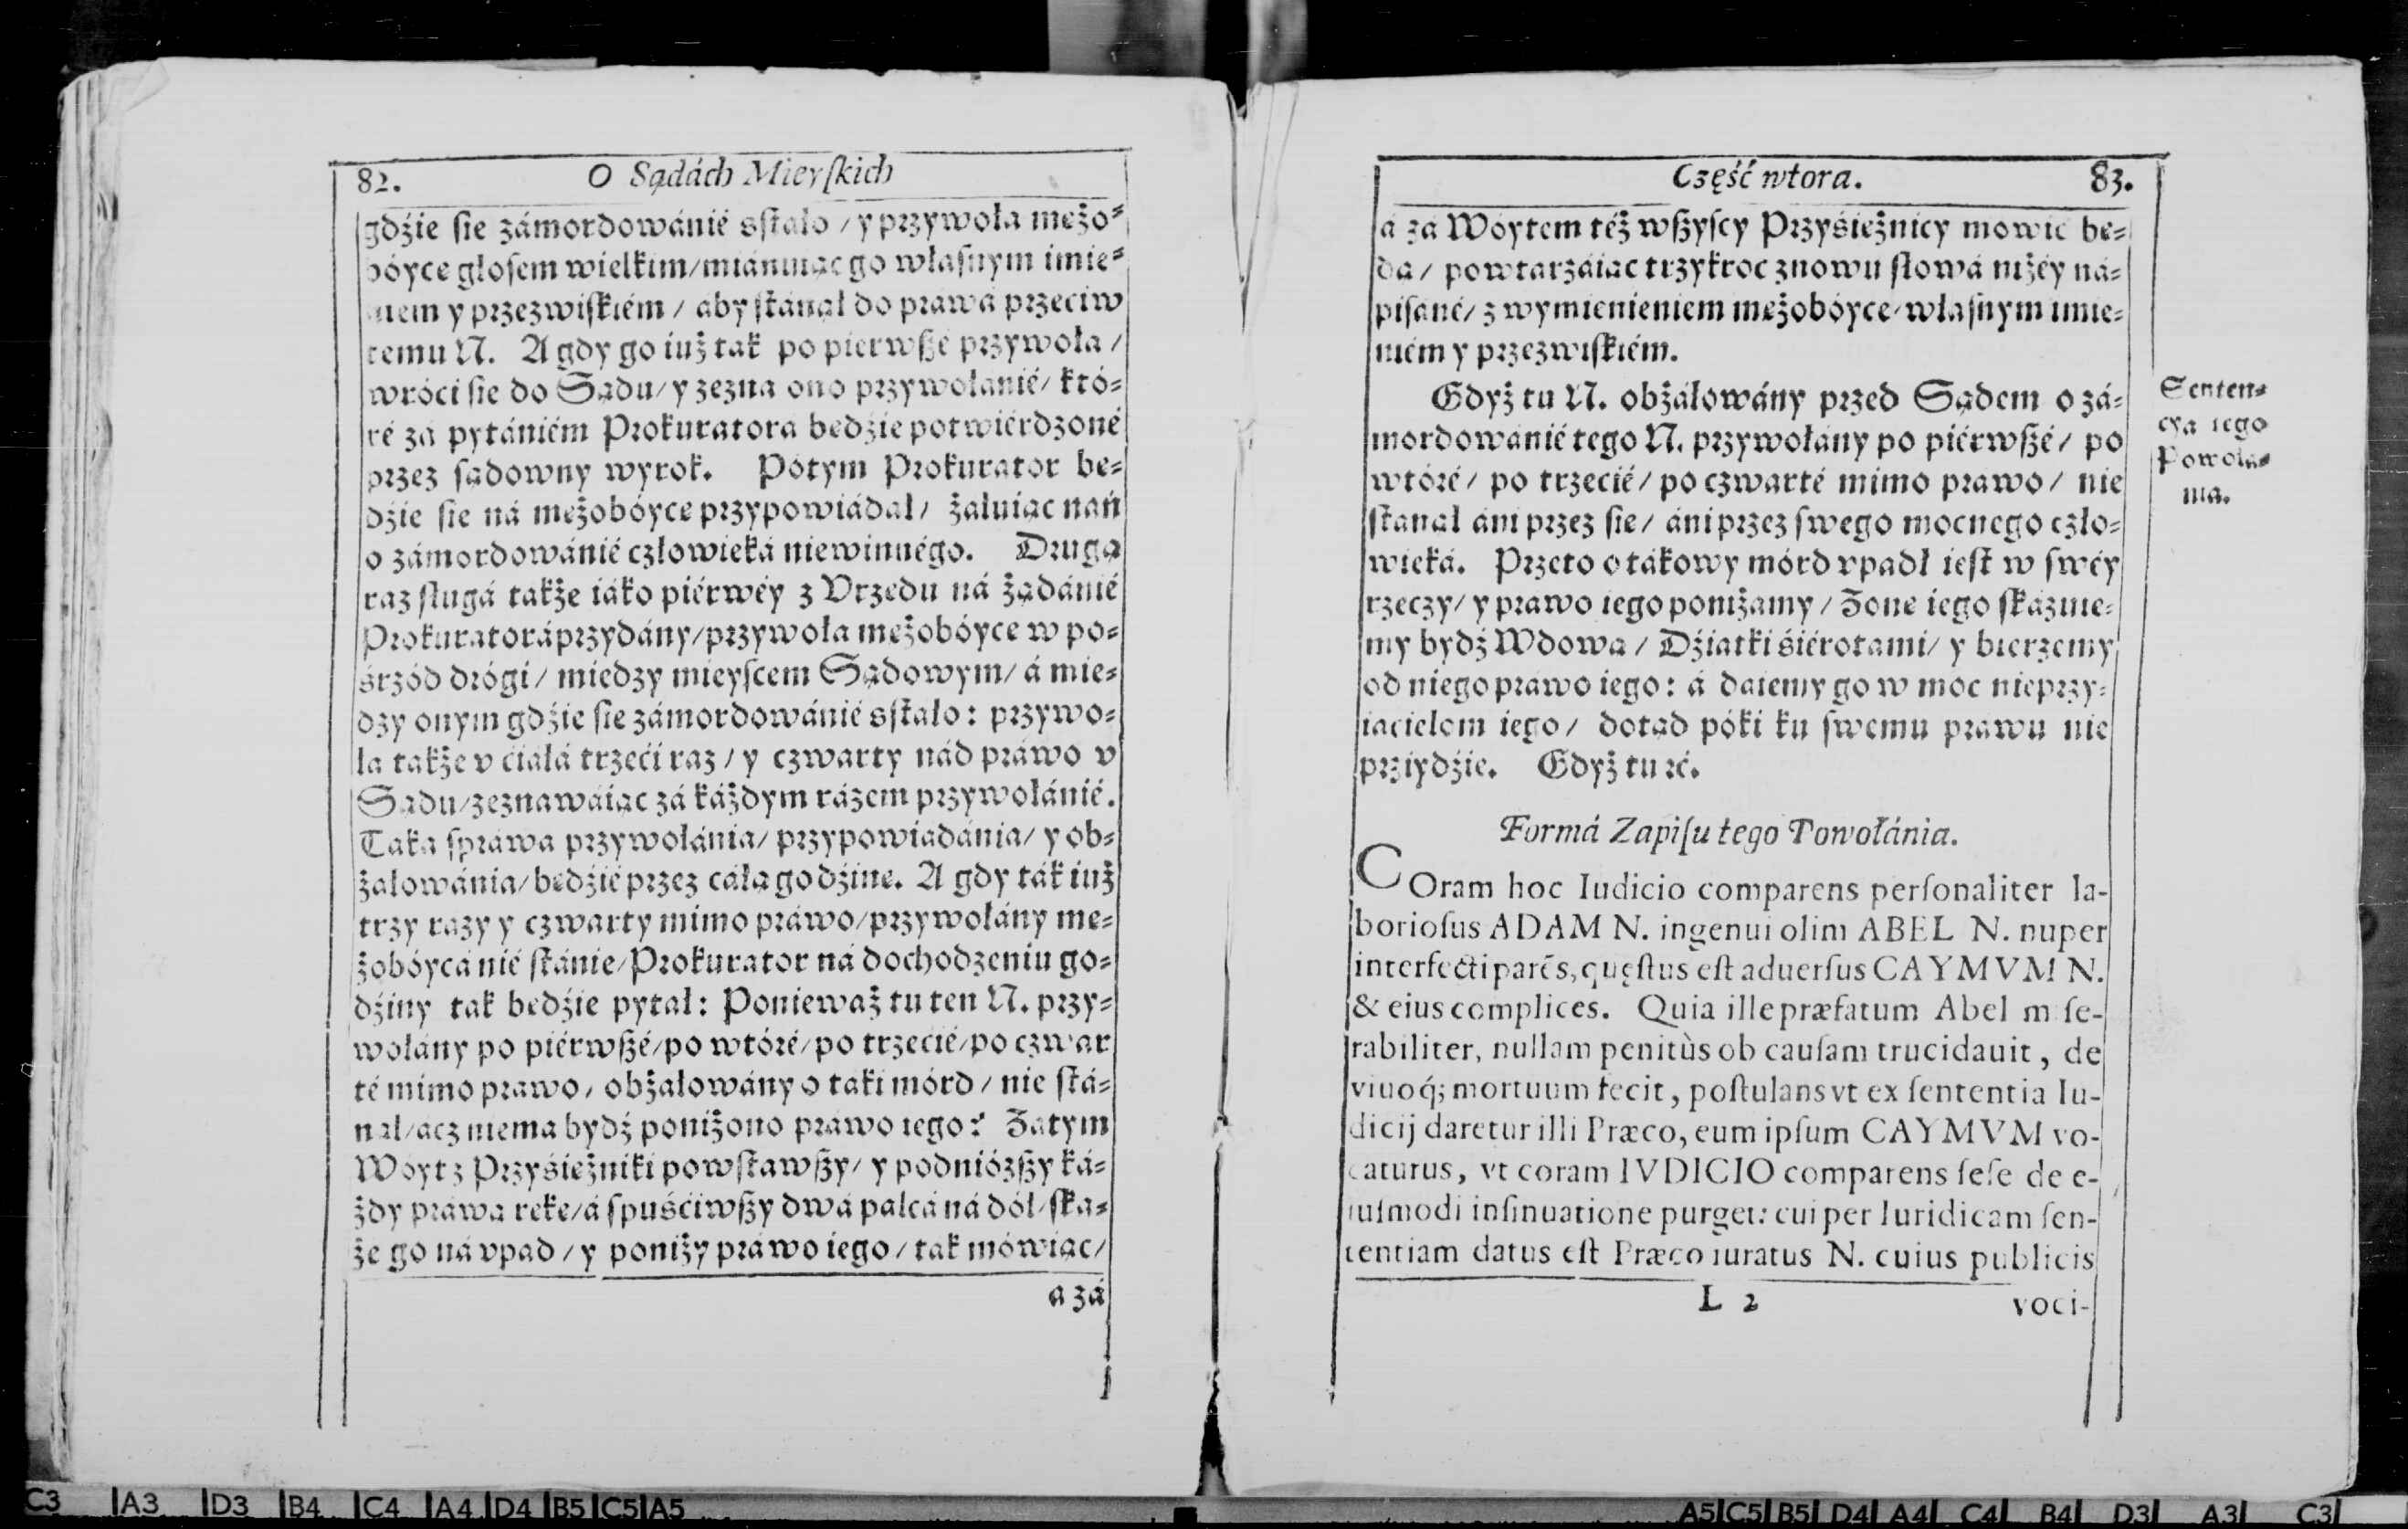 82.
O Sądách Mieyſkich
gdźie ſie zámordowánié sſtało / y przywoła mężo⸗
bóyce głoſem wielkim/miánuiąc go właſnym imie⸗
niem y przezwiſkiém / aby ſtánął do práwá przeciw
temu N. A gdy go iuż tak po pierwſzé przywoła /
wróci ſie do Sądu/ y zezna ono przywołanié/ któ⸗
ré zá pytániém Prokuratora będźie potwiérdzoné
przez ſądowny wyrok. Potym Prokurator bę⸗
dźie ſie ná mężobóyce przypowiádał/ żáłuiąc nań
o zámordowánié człowieká niewinnégo. Drugą
raz ſługá tákże iáko piérwéy z Vrzędu ná żądánié
Prokuratorá przydány/przywoła mężobóyce w po⸗
śrzód drógi / miedzy mieyſcem Sądowym/ á mie⸗
dzy onym gdźie ſie zámordowánié sſtało: przywo⸗
ła tákże v ciáłá trzeći raz / y czwarty nád práwo v
Sądu/zeznawáiąc zá káżdym rázem przywołánié.
Taka ſpráwa przywołánia/ przypowiadánia/ y ob⸗
żałowánia/ będźié przez całą godźinę. A gdy ták iuż
trzy razy y czwarty mimo práwo/przywołány mę⸗
żobóycá nié ſtánie/Prokurator ná dochodzeniu go⸗
dźiny tak będźie pytał: Ponieważ tu ten N. przy⸗
wołány po piérwſzé/po wtóré/po trzecié/po czwar
té mimo prawo / obżałowány o taki mórd / nie ſtá⸗
nął/acz niema bydź poniżono prawo iego? Zátym
Woyt z Przyśiężniki powſtawſzy/ y podniózſzy ká⸗
żdy prawą rękę/á ſpuśćiwſzy dwá palcá ná dół/ſka⸗
że go ná vpad / y poniży práwo iego / tak mówiąc/
a zá
Część wtora.
83.
á zá Woytem téż wſzyſcy Przyśiężnicy mowić bę⸗
dą / powtarzáiąc trzykroć znowu ſłowá niżéy ná⸗
piſané/ z wymienieniem mężobóyce/właſnym imie⸗
niém y przezwiſkiém.
Gdyż tu N. obżáłowány przed Sądem o zá⸗
mordowánié tego N. przywołány po piérwſzé / po
wtóré / po trzecié / po czwarté mimo prawo / nie
ſtanął áni przez ſie/ áni przez ſwego mocnego czło⸗
wieká. Przeto o tákowy mórd vpadł ieſt w ſwéy
rzeczy/ y prawo iego poniżamy / Zonę iego ſkázuie⸗
my bydź Wdową / Dźiatki śiérotami/ y bierzemy
od niego práwo iego: á daiemy go w moc nieprzy⸗
iacielom iego / dotąd póki ku ſwemu prawu nie
prziydźie. Gdyż tu ꝛć.
Senten⸗
cya tego
Powołá⸗
nia.
Formá Zapiſu tego Powołánia.
COram hoc Iudicio comparens perſonaliter la-
borioſus ADAM N. ingenui olim ABEL N. nuper
interfecti parēs, quęſtus eſt aduerſus CAYMVM N.
& eius complices. Quia ille præfatum Abel m ſe-
rabiliter, nullam penitùs ob cauſam trucidauit, de
viuoq́; mortuum fecit, poſtulans vt ex ſententia Iu-
dicij daretur illi Præco, eum ipſum CAYMVM vo-
caturus, vt coram IVDICIO comparens ſeſe de e-
iuſmodi inſinuatione purget: cui per Iuridicam ſen-
tentiam datus eſt Præco iuratus N. cuius publicis
L 2
voci-
C3 A3 D3 B4 C4 A4 D4 B5 C5 A5
A5 C5 B5 D4 A4 C4 B4 D3 A3 C3